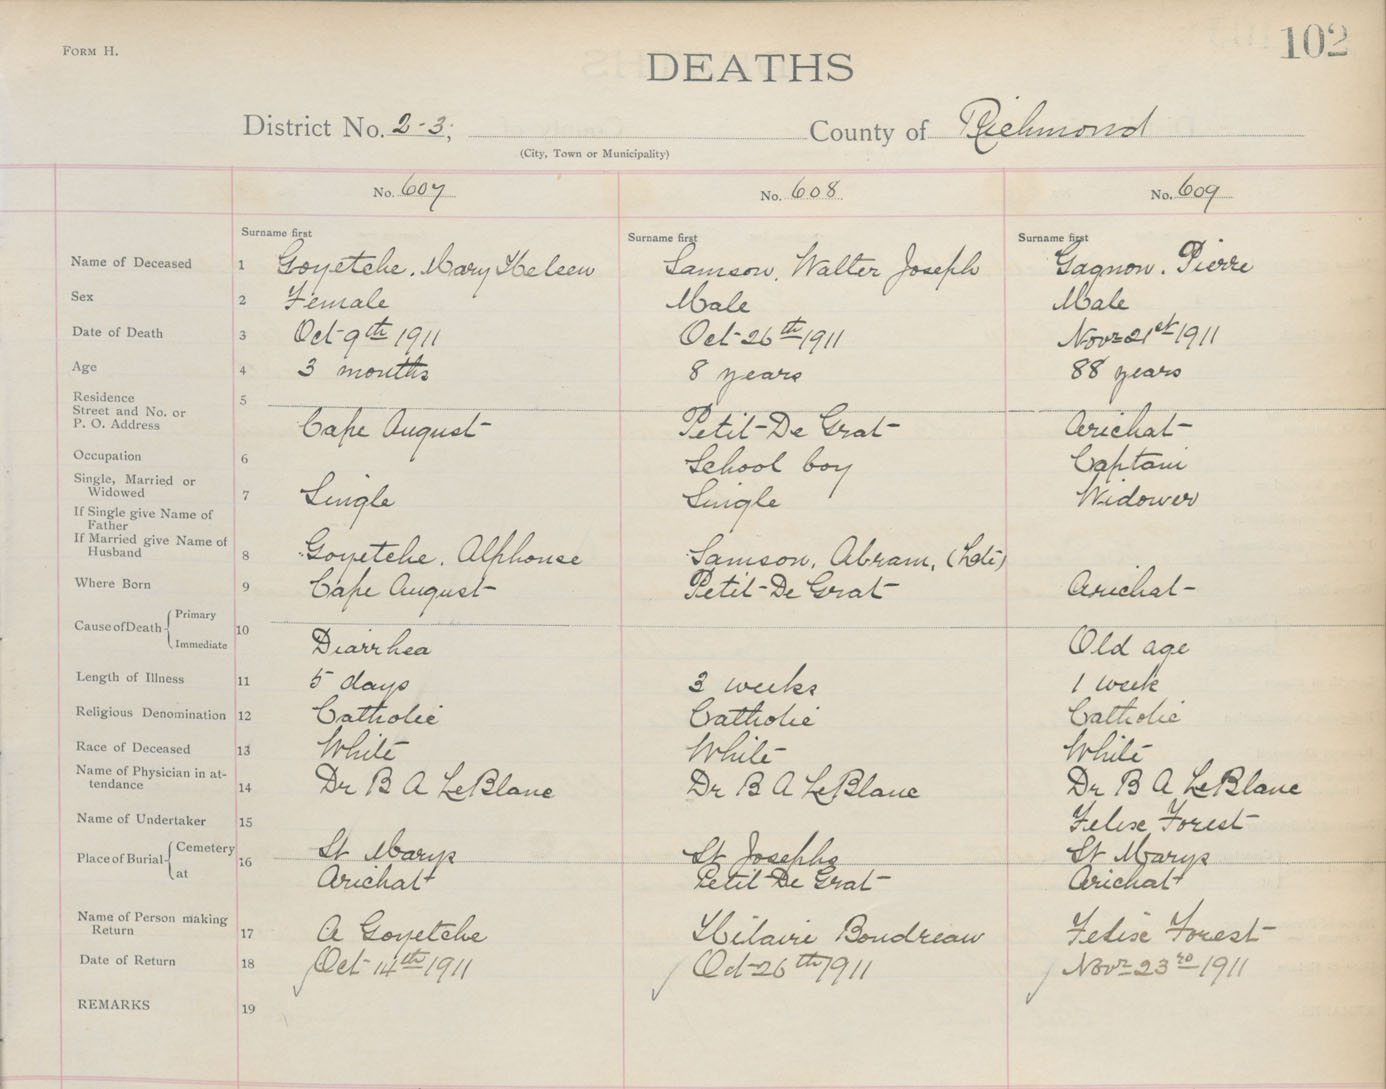 FORM H.
102
DEATHS
District No. 2-3; County of Richmond
(City, Town or Municipality)
No. 607 No. 608 No. 609
Surname first Surname first Surname first
Name of Deceased 1 Goyetche, Mary Helsen Samson, Walter Joseph Gagnon, Pierre
Sex 2 Female Male Male
Date of Death 3 Oct 9th 1911 Oct 26th 1911 Novr 21st 1911
Age 4 3 months 8 years 88 years
Residence 5
Street and No. or
P. O. Address Cape August Petit-De Grat Arichat
Occupation 6 School boy Captain
Single, Married or
Widowed 7 Single Single Widower
If Single give Name of
Father
If Married give Name of
Husband 8 Goyetche, Alphonse Samson, Abram, (Late)
Where Born 9 Cape August Petit-De Grat Arichat
Cause of Death Primary
Immediate 10 Diarrhea Old age
Length of Illness 11 5 days 3 weeks 1 week
Religious Denomination 12 Catholic Catholic Catholic
Race of Deceased 13 White White White
Name of Physician in at-
tendance 14 Dr B A LeBlanc Dr B A LeBlanc Dr B A LeBlanc
Name of Undertaker 15 Felix Forest
Place of Burial Cemetery 16 St Marys St Josephs St Marys
at Arichat Petit De Grat Arichat
Name of Person making
Return 17 A Goyetche Hilaire Boudreau Felix Forest
Date of Return 18 Oct 14th 1911 Oct 26th 1911 Novr 23rd 1911
REMARKS 19